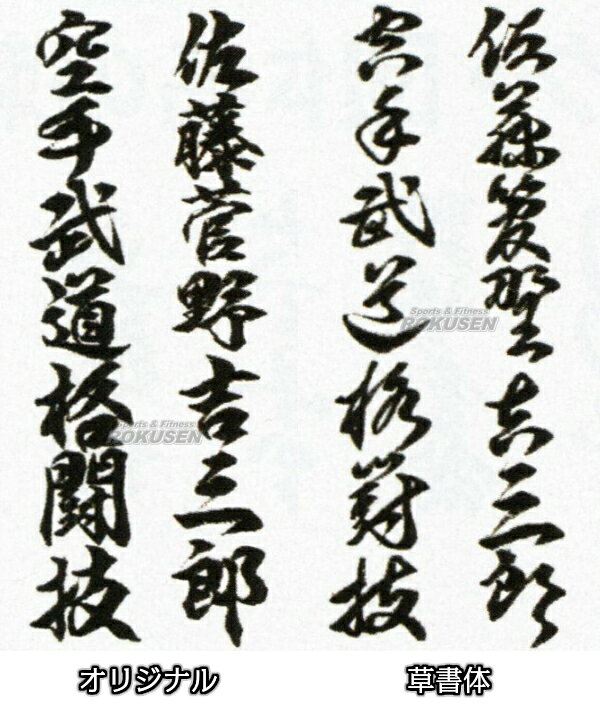 佐藤菅野吉三郎
空手武道格闘技
佐藤菅野吉三郎
空手武道格闘技
Sports & Fitness
ROKUSEN
Sports & Fitness
ROKUSEN
オリジナル
草書体